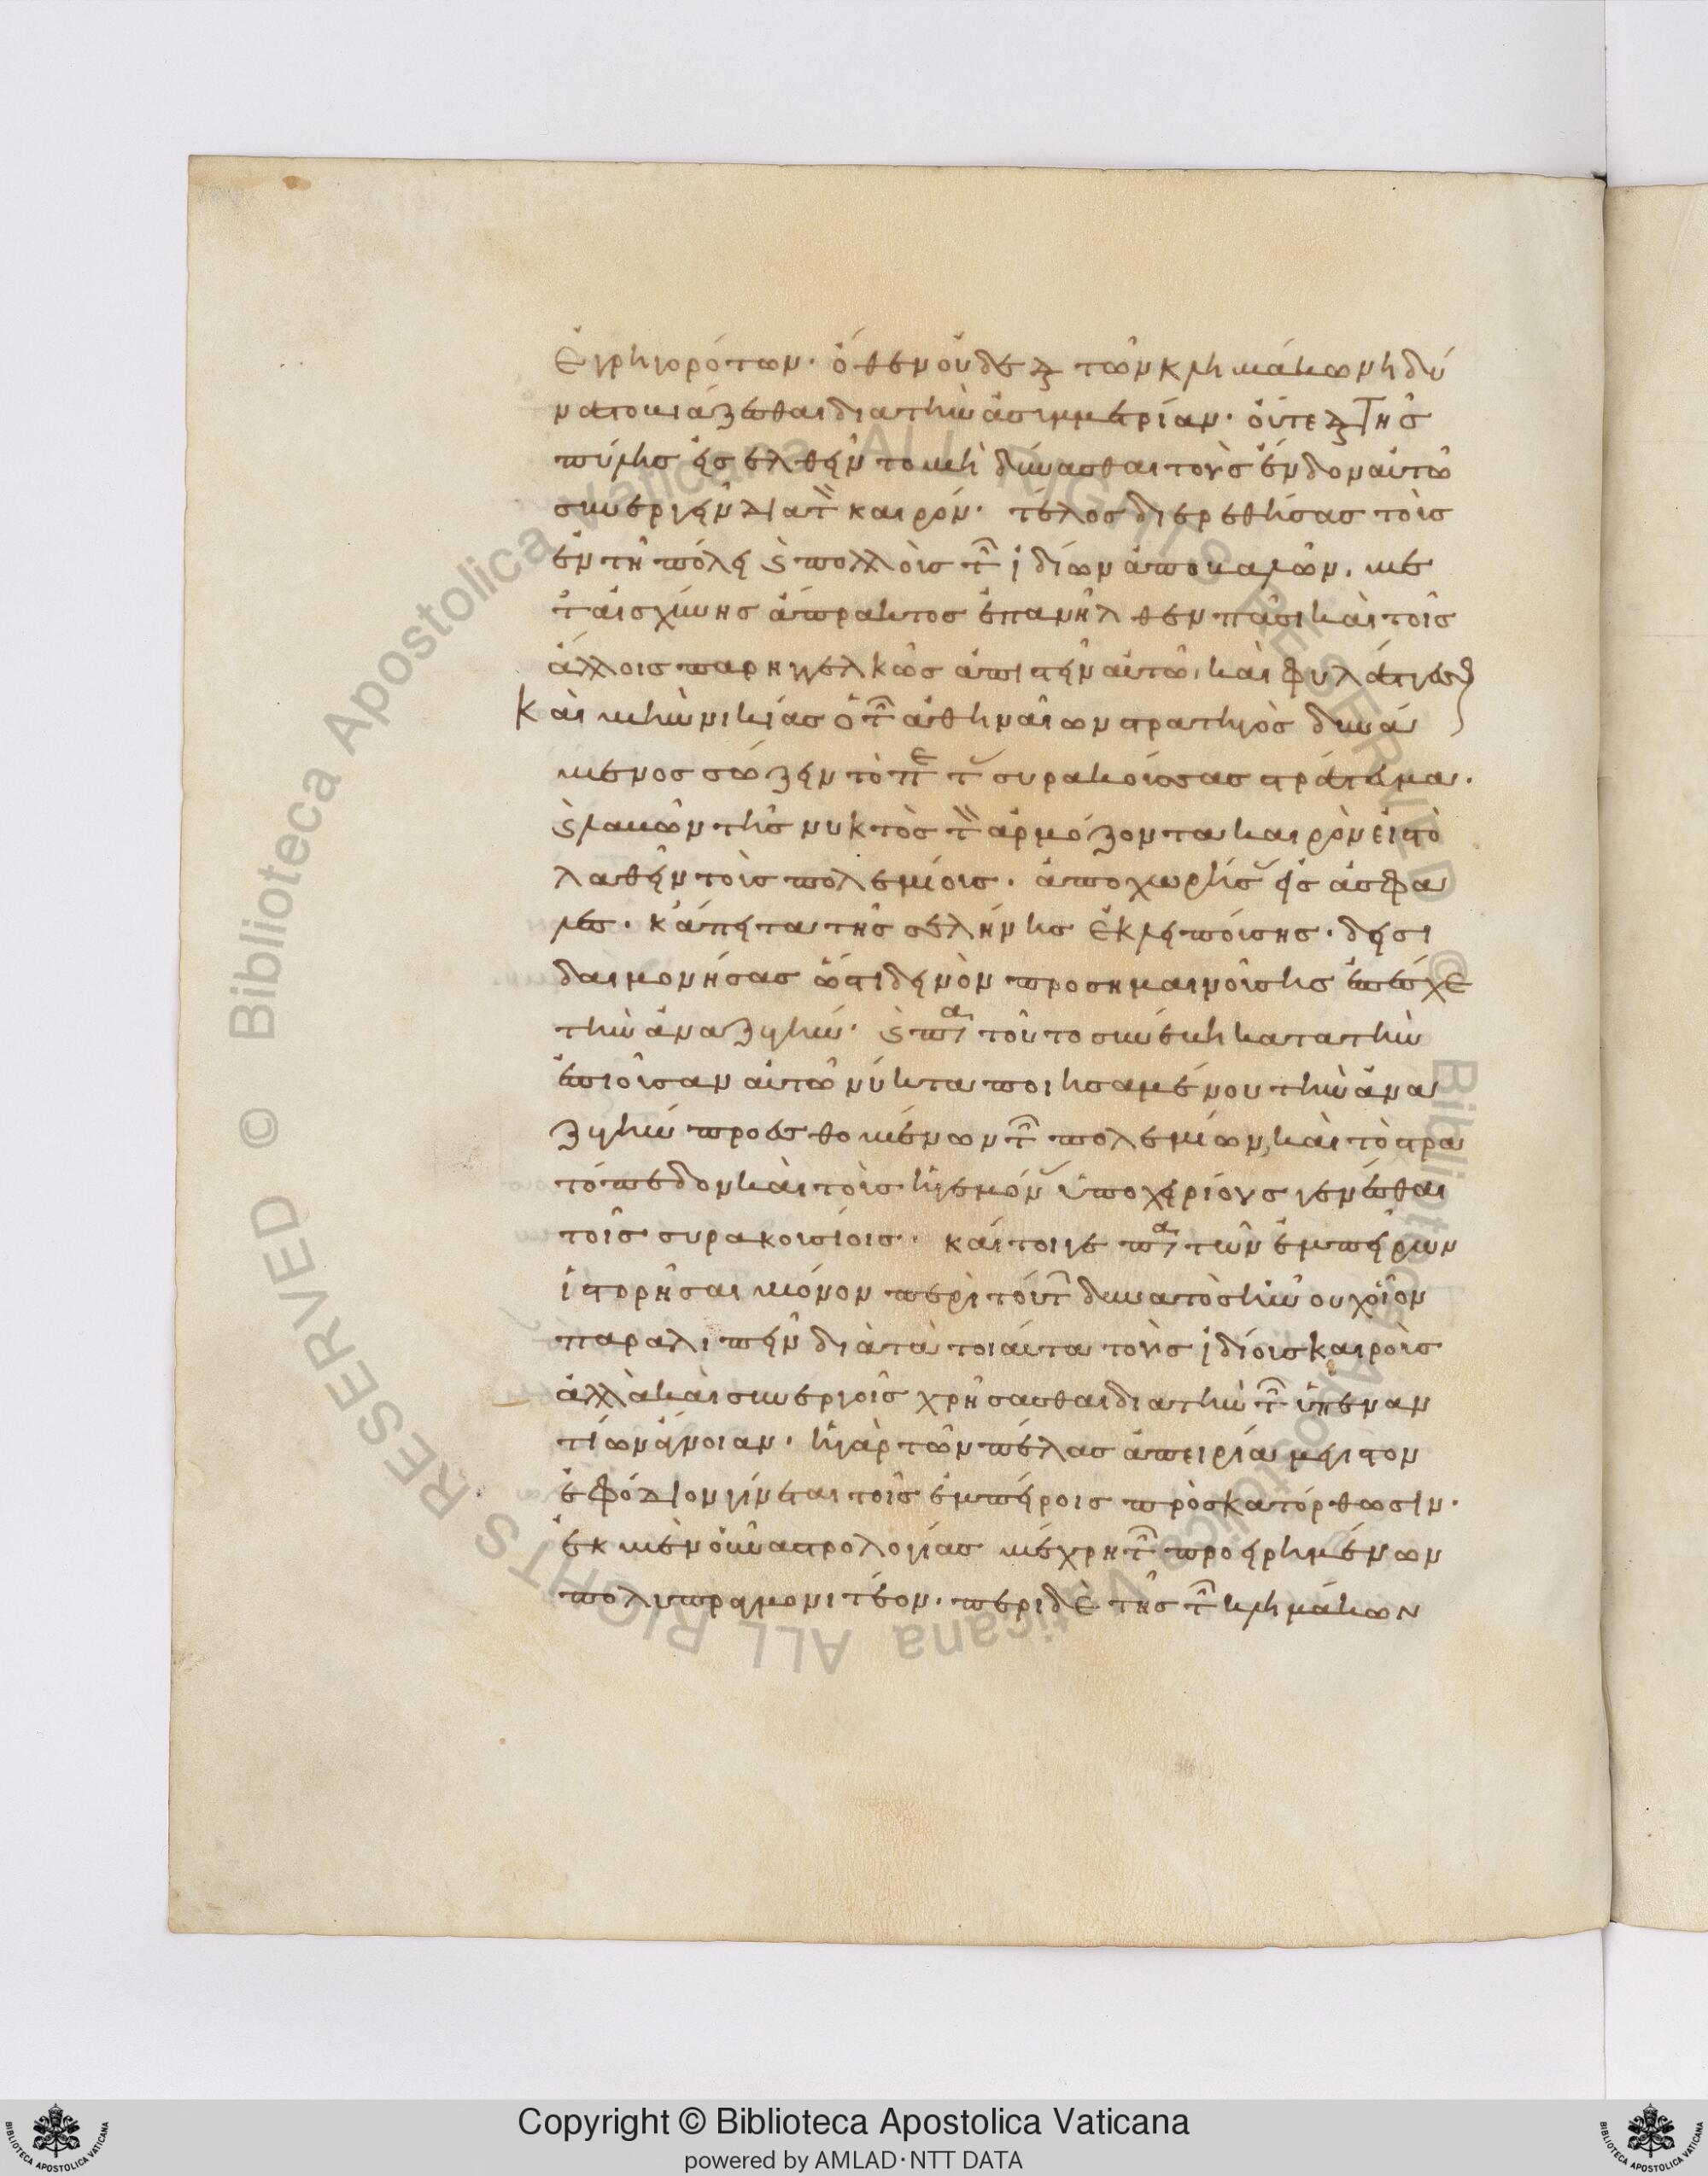 ἐγρηγορότων· ὅθεν οὐδὲ διὰ τῶν κλημάκων ἠδύ
νατο βιάζεσθαι διὰ τὴν ἀσυμμετρίαν· οὔτε διὰ τῆς
πύλης εἰσελθεῖν τῶ μὴ δύνασθαι τοὺς ἔνδον αὐτῶ
συνεργεῖν διὰ τὸν καιρόν· τέλος διερεθίσας τοὺς
ἐν τῆ πόλει καὶ πολλοὺς τῶν ἰδίων ἀποβαλὼν, μετ
αἰσχύνης ἄπρακτος ἐπανῆλθεν πᾶσι καὶ τοῖς
ἄλλοις παρηγγελκὼς ἀπιστεῖν αὐτῶ, καὶ φυλάττεσθαι
καὶ μὴν νικίας ὁ τῶν ἀθηναίων στρατηγὸς δυνά
μενος σώζειν τὸ περὶ τὰς συρακούσσας στράτευμα·
καὶ λαβὼν τῆς νυκτὸς τὸν ἁρμόζοντα καιρὸν εἰς τὸ
λαθεῖν τοὺς πολεμίους· ἀποχωρήσας εἰς ἀσφα
λές· κἄπειτα τῆς σελήνης ἐκλειπούσης· δεισι
δαιμονήσας ὥς τι δεινὸν προσημαινούσης ἐπέσχε
τὴν ἀναζυγήν· καὶ παρὰ τοῦτο συνέβη κατὰ τὴν
ἐπιοῦσαν αὐτοῦ νύκτα ποιησαμένου τὴν ἀνα
ζυγὴν προαισθομένων τῶν πολεμίων, καὶ τὸ στρα
τόπεδον καὶ τοὺς ἡγεμόνας ὑποχειρίους γενέσθαι
τοῖς συρακουσίοις· καίτοιγε παρὰ τῶν ἐμπείρων
ἱστορήσας μόνον περὶ τούτων δυνατὸς ἦν οὐχ οἷον
παραλιπεῖν διὰ τὰ τοιαῦτα τοὺς ἰδίους καιροὺς
ἀλλὰ καὶ συνεργοῖς χρήσασθαι διὰ τὴν τῶν ὑπεναν
τίων ἄγνοιαν· ἡ γὰρ τῶν πέλας ἀπειρία μέγιστον
ἐφόδιον γίνεται τοῖς ἐμπείροις πρὸς κατόρθωσιν·
ἐκ μὲν οὖν ἀστρολογίας μέχρι τῶν προειρημένων
πολυπραγμονητέον· περὶ δὲ τῆς τῶν κλημάκων
Copyright © Biblioteca Apostolica Vaticana
powered by AMLAD·NTT DATA